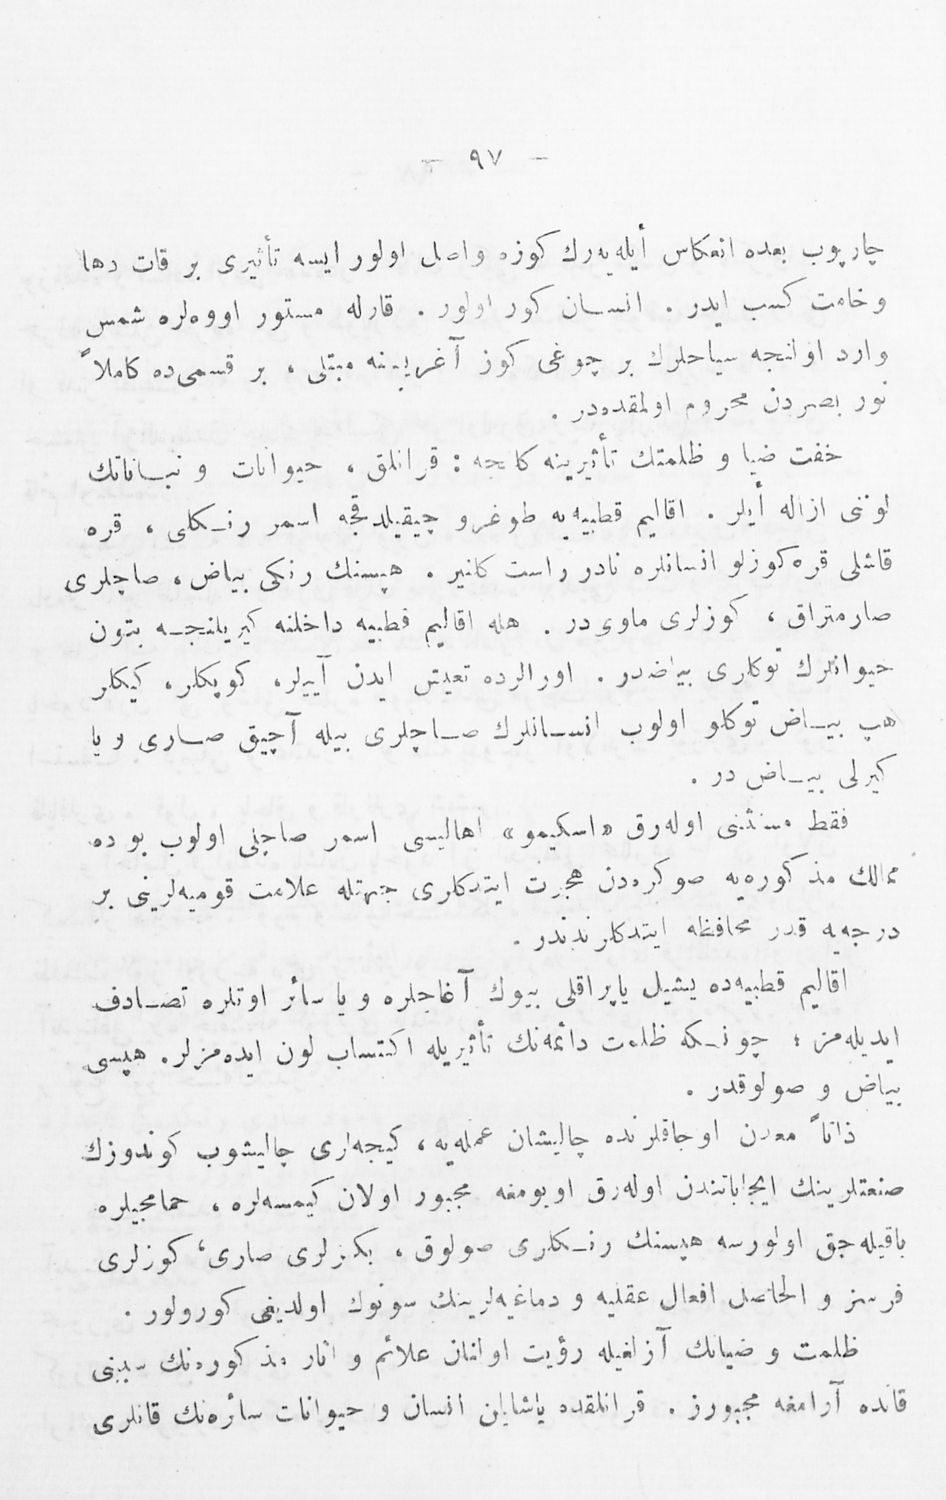 — ٩٧ —
چارپوب بعده انعكاس أيله‌يه‌رك كوزه واصل اولور ايسه تأثيرى بر قات دها
وخامت كسب ايدر . انسان كور اولور . قارله مستور اووه‌لره شمس
وارد اولنجه سياحلرك بر چوغى كوز آغريسنه مبتلى ، بر قسمى‌ده كاملاً
نور بصردن محروم اولمقده‌در .
خفت ضيا و ظلمتك تأثيرينه كلنجه : قرانلق ، حيوانات و نباتاتك
لوننى ازاله أيلر . اقاليم قطبيه‌يه طوغرو چيقيلدقجه اسمر رنكلى ، قره
قاشلى قره كوزلو انسانلره نادر راست كلنير . هپسنك رنكى بياض ، صاچلرى
صارمتراق ، كوزلرى ماوى در . هله اقاليم قطبيه داخلنه كيريلنجه بتون
حيوانلرك توكلرى بياضدر . اورالرده تعيش ايدن آييلر ، كوپكلر ، كيكلر
هپ بياض توكلو اولوب انسانلرك صاچلرى بيله آچيق صارى ويا
كيرلى بياض در .
فقط مستثنى اوله‌رق «اسكيمو» اهاليسى اسمر صاچلى اولوب بو ده
ممالك مذكوره‌يه صوكره‌دن هجرت ايتدكلرى جهتله علامت قوميه‌لرينى بر
درجه‌يه قدر محافظه ايتدكلرندندر .
اقاليم قطبيه‌ده يشيل ياپراقلى بيوك آغاجلره و يا سائر اوتلره تصادف
ايديله‌مز ؛ چونكه ظلمت دائمه‌نك تأثيريله اكتساب لون ايده‌مزلر . هپسى
بياض و صولوقدر .
ذاتاً معدن اوجاقلرنده چاليشان عمله‌يه ، كيجه‌لرى چاليشوب كوندوزك
صنعتلرينك ايجاباتندن اوله‌رق اويومغه مجبور اولان كيمسه‌لره ، حمامجيلره
باقيله‌جق اولورسه هپسنك رنكلرى صولوق ، بكزلرى صارى ، كوزلرى
فرسز و الحاصل افعال عقليه و دماغيه‌لرينك سونوك اولديغى كورولور .
ظلمت و ضيانك آزلغيله رؤيت اولنان علائم و آثار مذكوره‌نك سببنى
قانده آرامغه مجبورز . قرانلقده ياشايان انسان و حيوانات سائره‌نك قانلرى